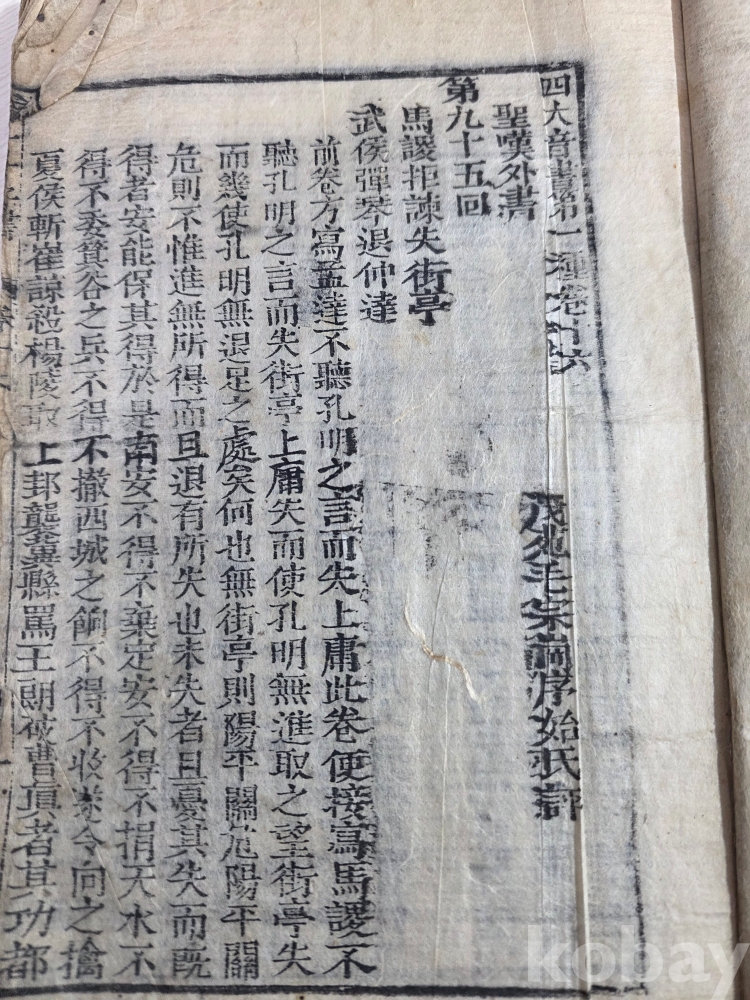 四大奇書第一種卷十六
聖嘆外書
茂苑毛宗崗序始氏評
第九十五回
馬謖拒諫失街亭
武侯彈琴退仲達
前卷方寫孟達不聽孔明之言而失上庸此卷便接寫馬謖不
聽孔明之言而失街亭上庸失而使孔明無進取之望街亭失
而幾使孔明無退足之處矣何也無街亭則陽平關危陽平關
危則不惟進無所得而且退有所失也未失者且憂其失而既
得者安能保其得於是南安不得不棄定安不得不捐天水不
得不委箕谷之兵不得不撤西城之餉不得不收遂令向之擒
夏侯斬崔諒殺楊陵取上邽襲冀縣罵王朗破曹真者其功都
kobay